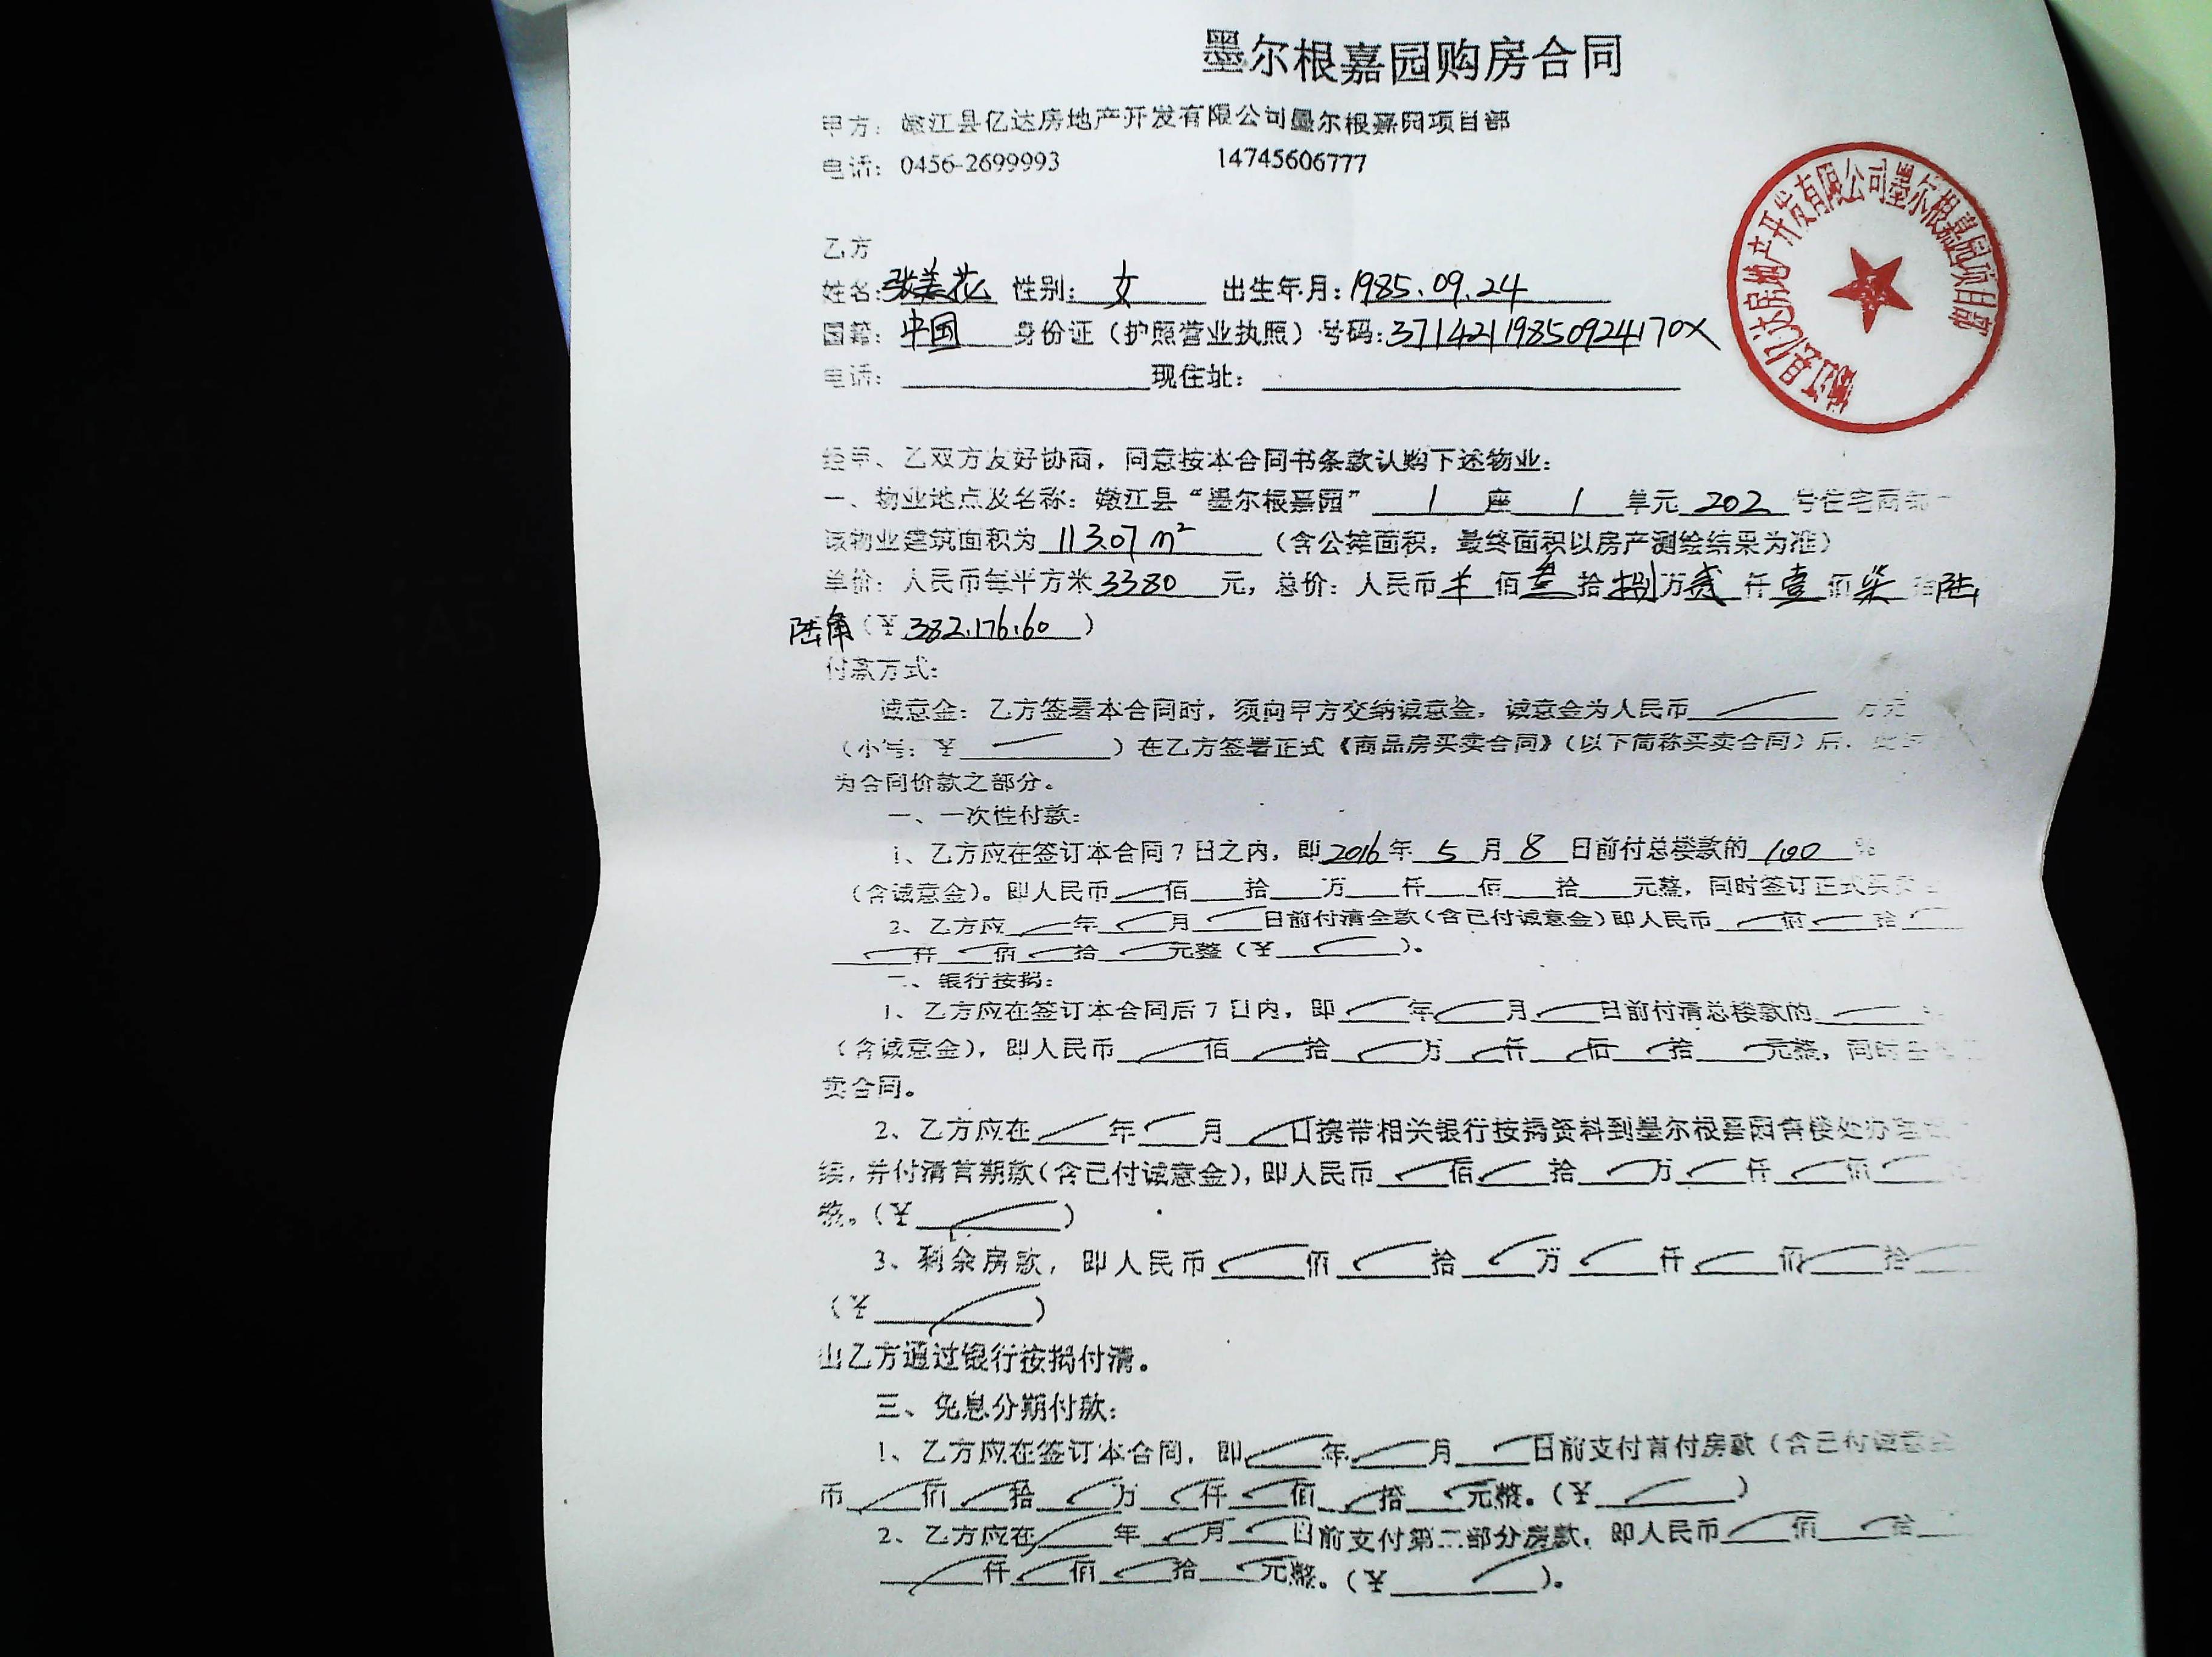 墨尔根嘉园购房合同
甲方：嫩江县亿达房地产开发有限公司墨尔根嘉园项目部
电话：0456-2699993 14745606777
嫩江县亿达房地产开发有限公司墨尔根嘉园项目部
乙方
姓名：张美花 性别：女 出生年月：1985.09.24
国籍：中国 身份证（护照营业执照）号码：37142119850924170X
电话： 现住址：
经甲、乙双方友好协商，同意按本合同书条款认购下述物业：
一、物业地点及名称：嫩江县“墨尔根嘉园” 1 座 1 单元 202 号住宅商
该物业建筑面积为 113.07m² （含公摊面积，最终面积以房产测绘结果为准）
单价：人民币每平方米3380 元，总价：人民币 佰叁拾捌万贰仟壹佰柒拾陆
陆角（¥382.176.60）
付款方式：
诚意金：乙方签署本合同时，须向甲方交纳诚意金，诚意金为人民币 万元
（小写：¥ ）在乙方签署正式《商品房买卖合同》（以下简称买卖合同）后，此
为合同价款之部分。
一、一次性付款：
1、乙方应在签订本合同7日之内，即2016年 5 月 8 日前付总楼款的 100 %
（含诚意金）。即人民币 佰 拾 万 仟 佰 拾 元整，同时签订正式买卖
2、乙方应 年 月 日前付清全款（含已付诚意金）即人民币 佰 拾
仟 佰 拾 元整（¥ ）。
二、银行按揭：
1、乙方应在签订本合同后7日内，即 年 月 日前付清总楼款的
（含诚意金），即人民币 佰 拾 万 仟 佰 拾 元整，同时
卖合同。
2、乙方应在 年 月 日携带相关银行按揭资料到墨尔根嘉园售楼处办理
续，并付清首期款（含已付诚意金），即人民币 佰 拾 万 仟 佰
整。（¥ ）
3、剩余房款，即人民币 佰 拾 万 仟 佰 拾
（¥ ）
由乙方通过银行按揭付清。
三、免息分期付款：
1、乙方应在签订本合同，即 年 月 日前支付首付房款（含已付诚意金
币 佰 拾 万 仟 佰 拾 元整。（¥ ）
2、乙方应在 年 月 日前支付第二部分房款，即人民币 佰 拾
仟 佰 拾 元整。（¥ ）。